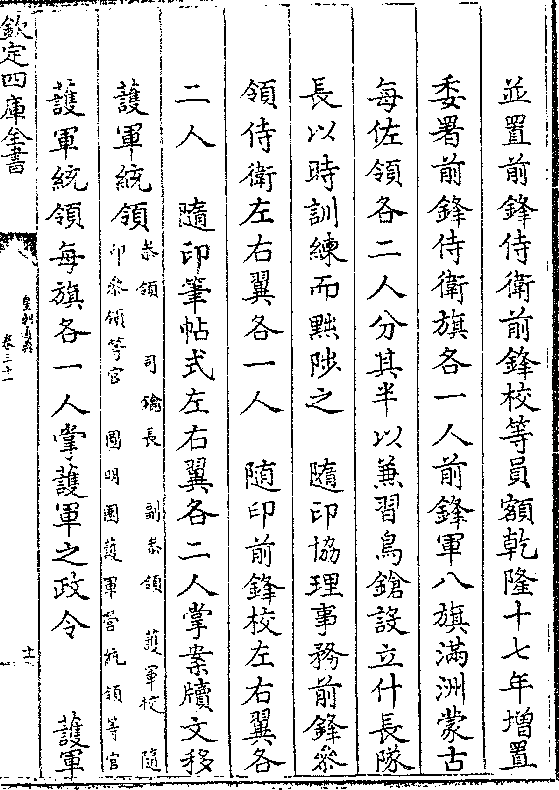 並置前鋒侍衛前鋒校等員額乾隆十七年增置
委署前鋒侍衛旗各一人前鋒軍八旗滿洲蒙古
每佐領各二人分其半以兼習鳥鎗設立什長隊
長以時訓練而黜陟之　隨印協理事務前鋒叅
領侍衛左右翼各一人　隨印前鋒校左右翼各
二人　隨印筆帖式左右翼各二人掌案牘文移
護軍統領
叅領　司鑰長　副叅領　護軍校　隨
印叅領等官　圓明園護軍營統領等官
護軍統領每旗各一人掌護軍之政令　護軍
欽定四庫全書
皇朝通典
卷三十一